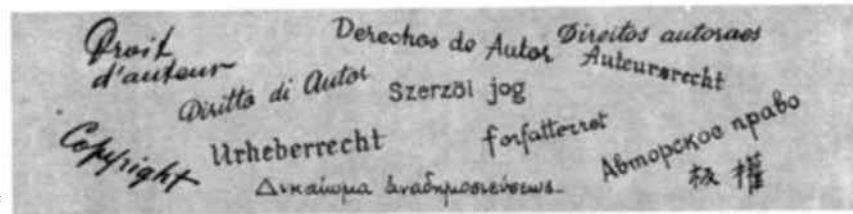 Droit
d'auteur
Derechos de Autor
Direitos autoraes
Auteursrecht
Diritto di Autor
Szerzöi jog
Copyright
Urheberrecht
forfatterret
Авторское право
Δικαίωμα ἀναδημοσιεύσεως
板權